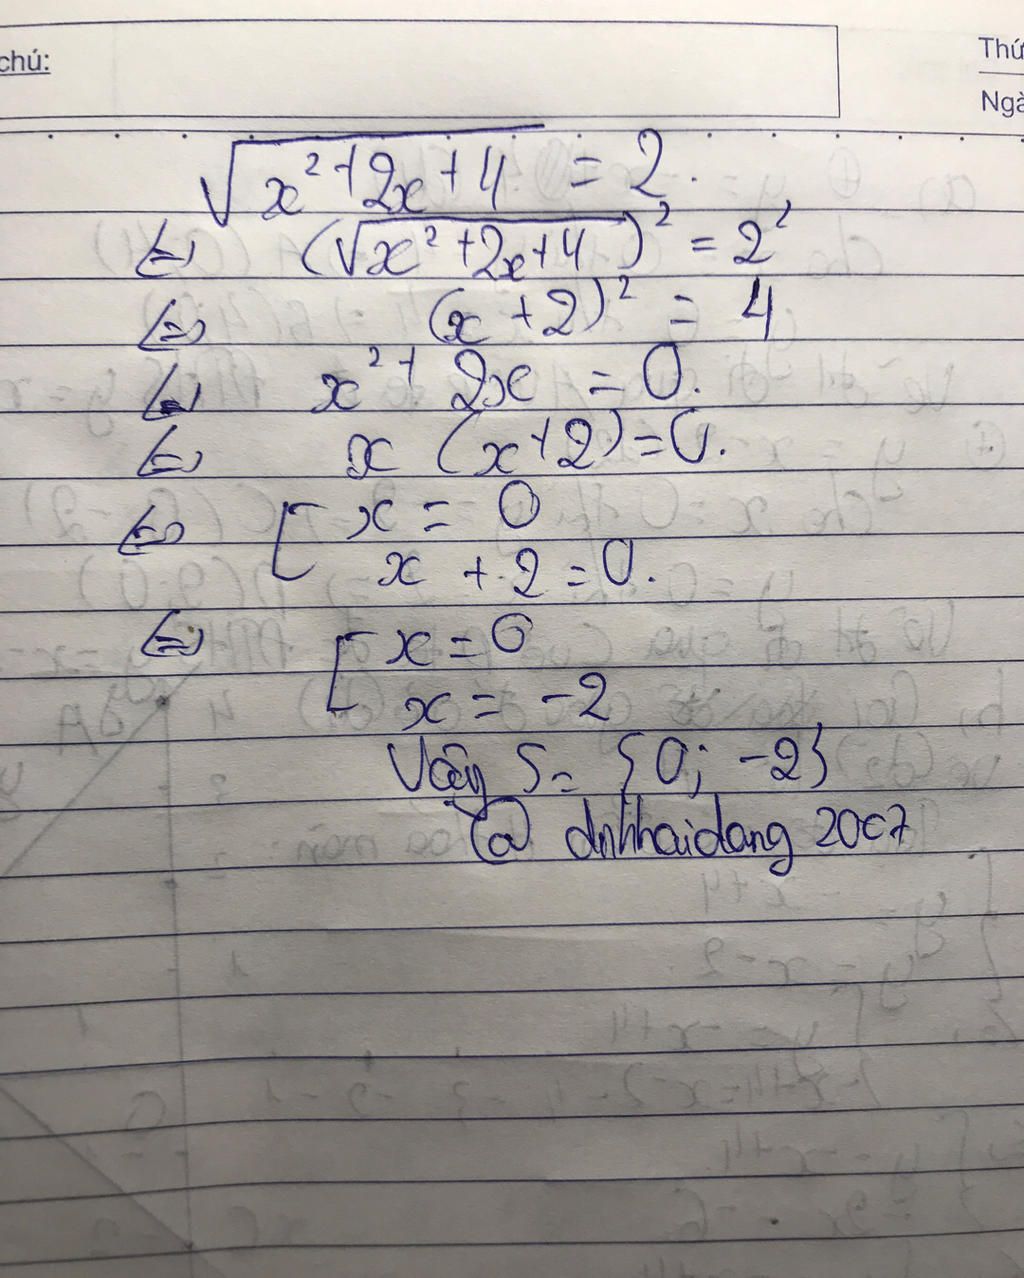 chú:
Thứ
Ngà
√(x² + 2x + 4) = 2.
<=> (√(x² + 2x + 4))² = 2²
<=> (x + 2)² = 4
<=> x² + 2x = 0.
<=> x (x + 2) = 0.
<=> [ x = 0
x + 2 = 0.
<=> [ x = 0
x = -2
Vậy S = {0; -2}
@ dnhhaidang 2007